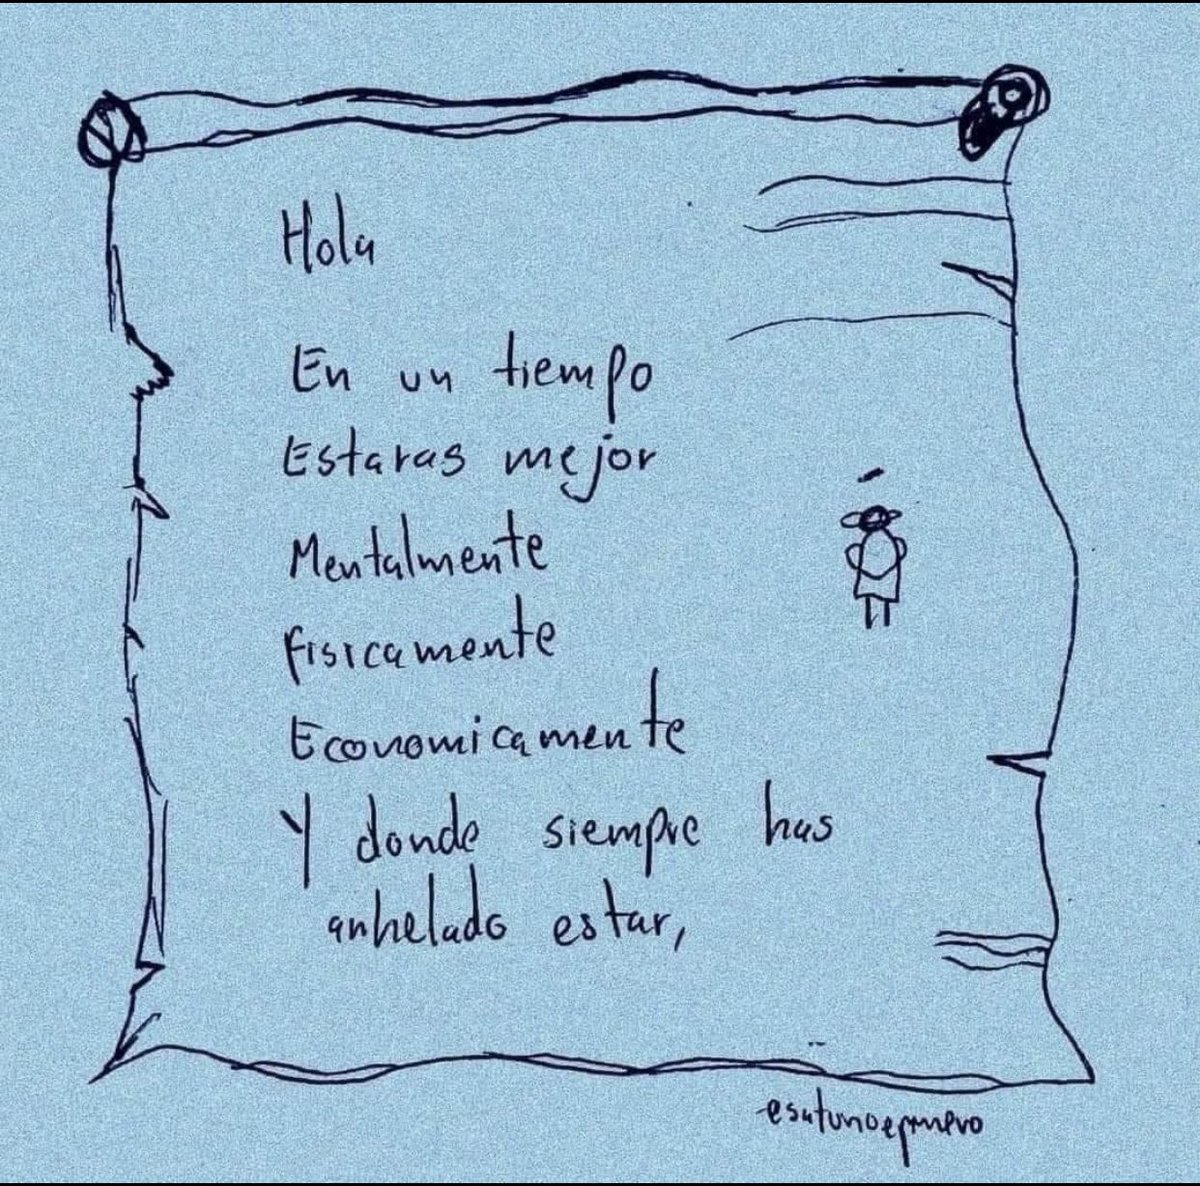 Hola
En un tiempo
Estaras mejor
Mentalmente
fisicamente
Economicamente
Y donde siempre has
anhelado estar,